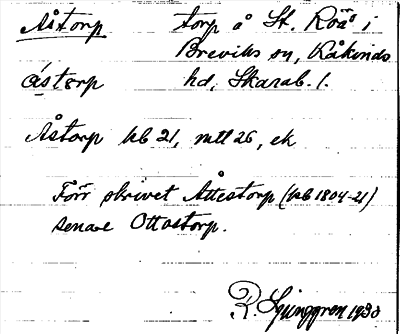 Åstorp torp å St. Röå i
Breviks sn, Kåkinds
åstɛrp hd, Skarab. l.
Åstorp kb 21, mtl 26, ek
Förr skrivet Åttestorp (kb 1804-21)
senare Ottostorp.
R. Ljunggren 1930